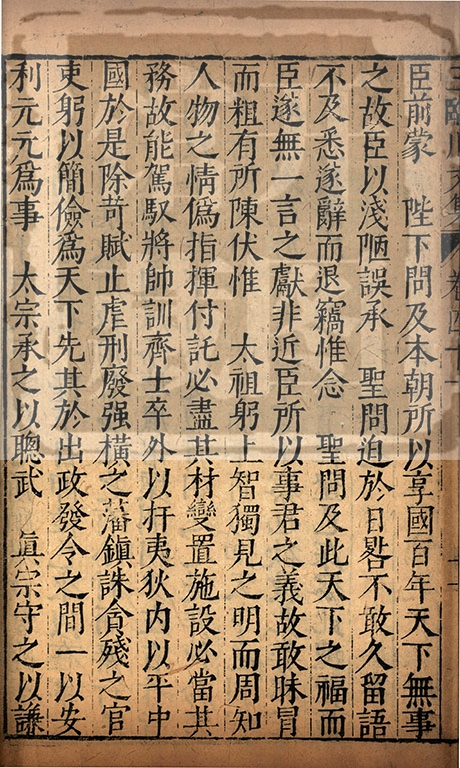 臣前蒙　陛下問及本朝所以享國百年天下無事
之故臣以淺陋誤承　聖問迫於日晷不敢久留語
不及悉遂辭而退竊惟念　聖問及此天下之福而
臣遂無一言之獻非近臣所以事君之義故敢昧冒
而粗有所陳伏惟　太祖躬上智獨見之明而周知
人物之情僞指揮付託必盡其材變置施設必當其
務故能駕馭將帥訓齊士卒外以扞夷狄内以平中
國於是除苛賦止虐刑廢强橫之藩鎮誅貪殘之官
吏躬以簡儉爲天下先其於出政發令之間一以安
利元元爲事　太宗承之以聰武　眞宗守之以謙